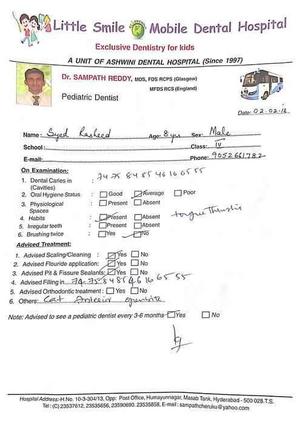 Little Smile Mobile Dental Hospital
Exclusive Dentistry for kids
A UNIT OF ASHWINI DENTAL HOSPITAL (Since 1997)
Dr. SAMPATH REDDY, MDS, FDS RCPS (Glasgow)
MFDS RCS (England)
Pediatric Dentist
Date: 02-02-16
Name: Syed Rasheed Age: 8 yrs Sex: Male
School: Class: IV
E-mail: Phone: 9052661782
On Examination:
1. Dental Caries in (Cavities) 74 75 84 85 46 16 65 55
2. Oral Hygiene Status : Good Average Poor
3. Physiological Spaces : Present Absent
4. Habits : Present Absent tongue Thrusting
5. Irregular teeth : Present Absent
6. Brushing twice : Yes No
Advised Treatment:
1. Advised Scaling/Cleaning : Yes No
2. Advised Flouride application: Yes No
3. Advised Pit & Fissure Sealants: Yes No
4. Advised Filling in 74 75 84 85 46 16 65 55
5. Advised Orthodontic treatment : Yes No
6. Others:
Note: Advised to see a pediatric dentist every 3-6 months Yes No
Hospital Address-H.No. 10-3-304/13, Opp: Post Office, Humayunnagar, Masab Tank, Hyderabad - 500 028 T.S.
Tel: (C) 23537612, 23535656, 23590693, 23535858, E-mail: sampathcheruku@yahoo.com